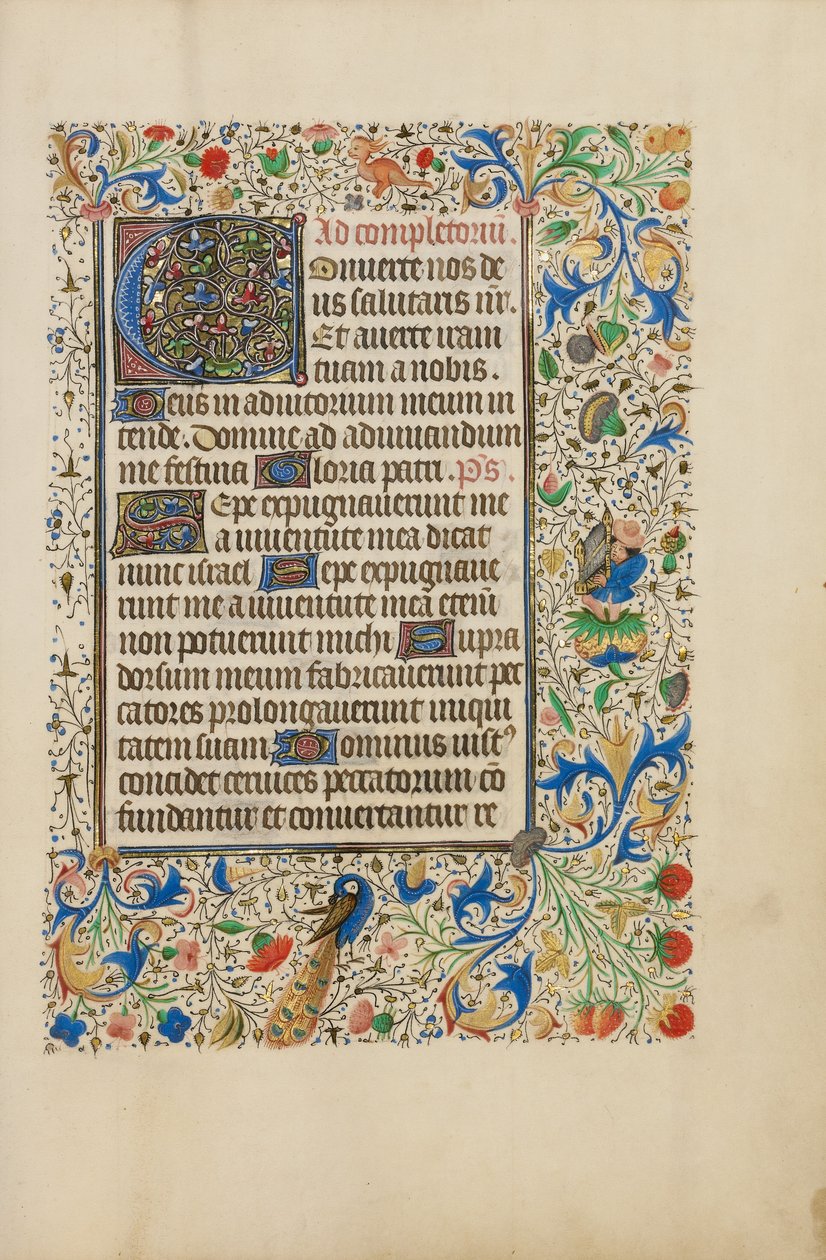 Ad completoriū.
Onuerte nos de
us salutaris nr̄.
Et auerte iram
tuam a nobis.
Deus in adiutorium meum in
tende. Domine ad adiuuandum
me festina Gloria patri. Ps̄.
Sepe expugnauerunt me
a iuuentute mea dicat
nunc israel Sepe expugnaue
runt me a iuuentute mea eteni̅
non potuerunt michi Supra
dorsum meum fabricauerunt pec
catores prolongauerunt iniqui
tatem suam Dominus iustꝰ
concidet ceruices peccatorum cō
fundantur et conuertantur re